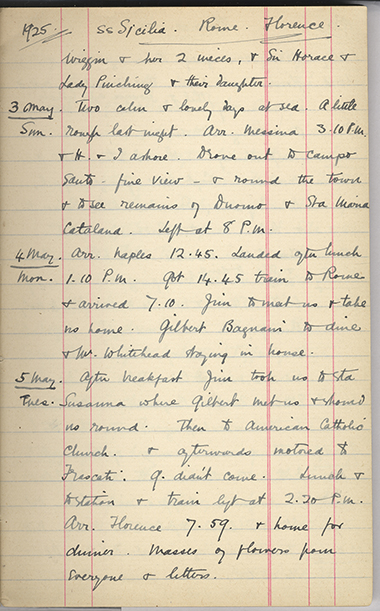 1925. SS Sicilia. Rome. Florence.
Wiggin & her 2 nieces, & Sir Horace &
Lady Pinching & their daughter.
3 May. Two calm & lovely days at sea. A little
Sun. rough last night. Arr. Messina 3.10 P.M.
& H. & I ashore. Drove out to Campo
Santo - fine view - & round the town
& to see remains of Duomo & Sta Maria
Catalana. Left at 8 P.M.
4 May. Arr. Naples 12.45. Landed after lunch
Mon. 1.10 P.M. Got 14.45 train to Rome
& arrived 7.10. Jim to meet us & take
us home. Gilbert Bagnani to dine
& Mr. Whitehead staying in house.
5 May. After breakfast Jim took us to Sta
Tues. Susanna where Gilbert met us & showed
us round. Then to American Catholic
Church. & afterwards motored to
Frascati. G. didn't come. Lunch &
to station & train left at 2.30 P.M.
Arr. Florence 7.59. & home for
dinner. Masses of flowers from
everyone & letters.